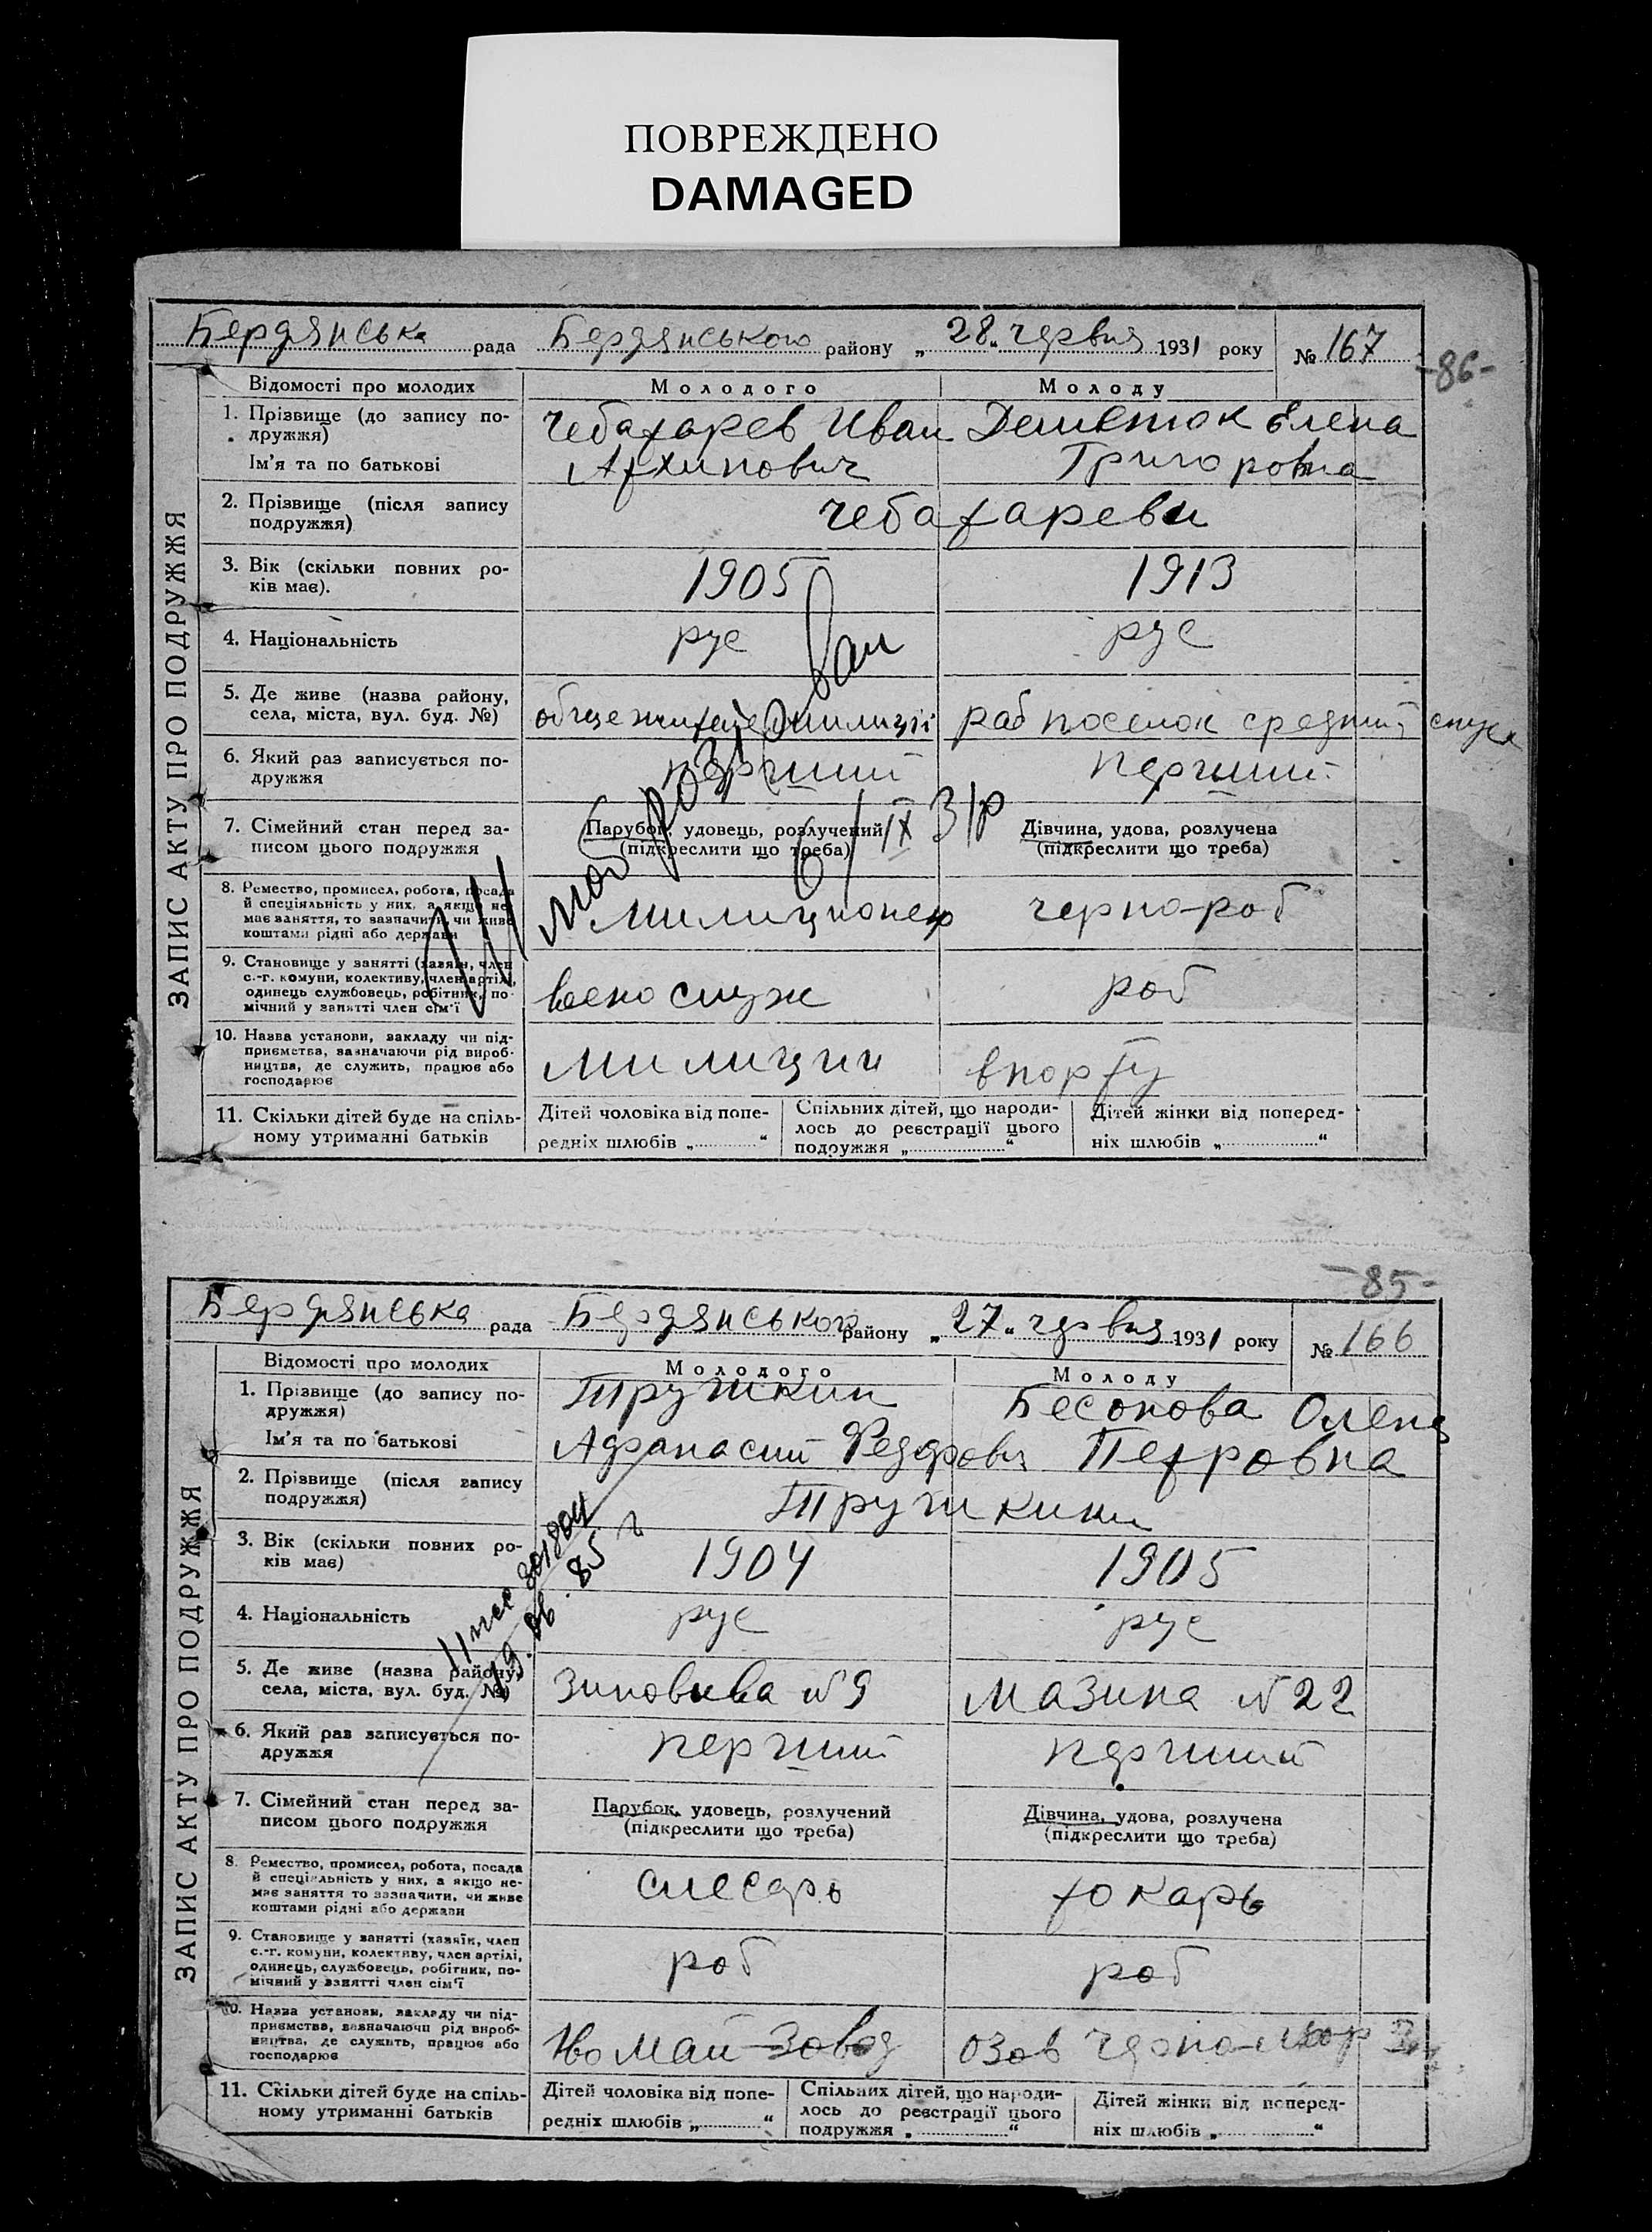 ПОВРЕЖДЕНО
DAMAGED
Бердянська рада Бердянського району „28“ червня 1931 року № 167
-86-
ЗАПИС АКТУ ПРО ПОДРУЖЖЯ
Відомості про молодих Молодого Молоду
1. Прізвище (до запису по-
дружжя)
Ім'я та по батькові
Чебатарев Иван
Архипович
Елена
Григоровна
2. Прізвище (після запису
подружжя)
Чебатареви
3. Вік (скільки повних ро-
ків має).
1905 1913
4. Національність
рус рус
5. Де живе (назва району,
села, міста, вул. буд. №)
общежитие милиціі раб поселок средний спуск
6. Який раз записується по-
дружжя
перший перший
7. Сімейний стан перед за-
писом цього подружжя
Парубок, удовець, розлучений
(підкреслити що треба)
Дівчина, удова, розлучена
(підкреслити що треба)
6/IX 31р
8. Ремество, промисел, робота, посада
й спеціяльність у них, а якщо не
має заняття, то зазначити, чи живе
коштами рідні або держави
милиционер черно-роб
9. Становище у занятті (хазяїн, член
с.-г. комуни, колективу, член артілі,
одинець службовець, робітник, по-
мічний у занятті член сім'ї
воено служ роб
10. Назва установи, закладу чи під-
приємства, зазначаючи рід вироб-
ництва, де служить, працює або
господарює
милиции в порту
11. Скільки дітей буде на спіль-
ному утриманні батьків
Дітей чоловіка від попе-
редніх шлюбів „ “
Спільних дітей, що народи-
лось до реєстрації цього
подружжя „ “
Дітей жінки від поперед-
ніх шлюбів „ “
-85-
Бердянська рада Бердянського району „27“ червня 1931 року № 166
ЗАПИС АКТУ ПРО ПОДРУЖЖЯ
Відомості про молодих Молодого Молоду
1. Прізвище (до запису по-
дружжя)
Ім'я та по батькові
Трушкин
Афанасий Федорович
Бесонова Олена
Петровна
2. Прізвище (після запису
подружжя)
Трушкини
3. Вік (скільки повних ро-
ків має)
1904 1905
19.06.85 г
4. Національність
рус рус
5. Де живе (назва району,
села, міста, вул. буд. №)
Зиновьева №9 Мазина №22
6. Який раз записується по-
дружжя
перший перший
7. Сімейний стан перед за-
писом цього подружжя
Парубок, удовець, розлучений
(підкреслити що треба)
Дівчина, удова, розлучена
(підкреслити що треба)
8. Ремество, промисел, робота, посада
й спеціяльність у них, а якщо не-
має заняття то зазначити, чи живе
коштами рідні або держави
слесарь токарь
9. Становище у занятті (хазяїн, член
с.-г. комуни, колективу, член артілі,
одинець, службовець, робітник, по-
мічний у занятті член сім'ї
роб роб
10. Назва установи, закладу чи під-
приємства, зазначаючи рід вироб-
ництва, де служить, працює або
господарює
Май Завод Озов
11. Скільки дітей буде на спіль-
ному утриманні батьків
Дітей чоловіка від попе-
редніх шлюбів „ “
Спільних дітей, що народи-
лось до реєстрації цього
подружжя „ “
Дітей жінки від поперед-
ніх шлюбів „ “